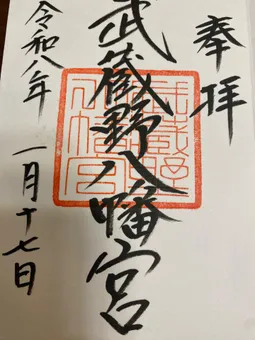 奉拝
武蔵野八幡宮
武蔵野八幡宮
令和八年
一月十七日